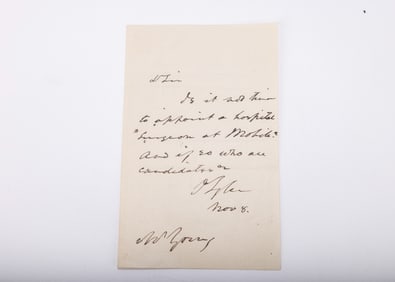 D Sir
Is it not time
to appoint a hospital
"Surgeon at Mobile"
And if so who are
candidates
J Tyler
Nov 8.
Mr Young